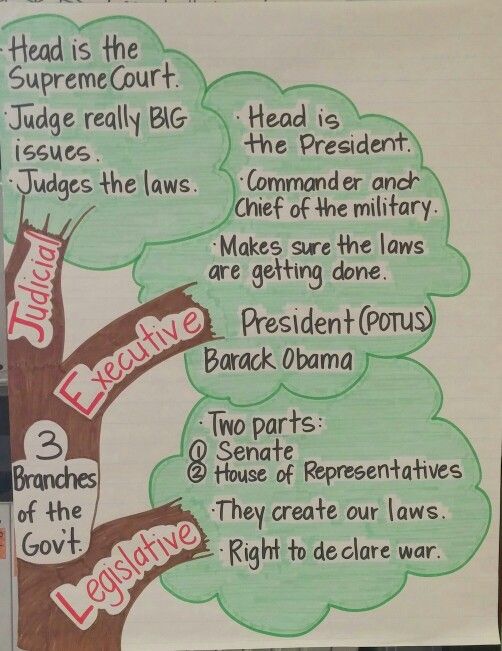 · Head is the
Supreme Court.
· Judge really BIG
issues.
· Judges the laws.
Judicial
· Head is
the President.
· Commander and
Chief of the military.
· Makes sure the laws
are getting done.
President (POTUS)
Barack Obama
Executive
3
Branches
of the
Gov't.
· Two parts:
① Senate
② House of Representatives
· They create our laws.
· Right to declare war.
Legislative